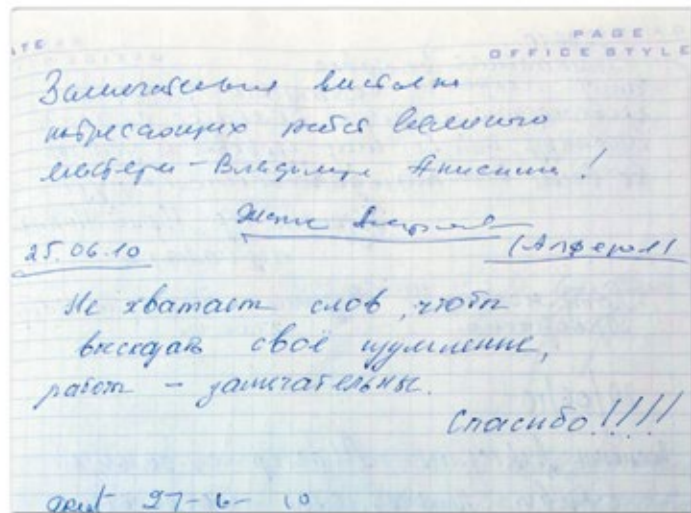 ATE
PAGE
OFFICE STYLE
Замечательная выставка
потрясающих работ великого
мастера – Владимира Анисина!
25.06.10 (Алферов)
Не хватает слов, чтобы
высказать своё изумление,
работы – замечательны.
Спасибо!!!!
27-6-10